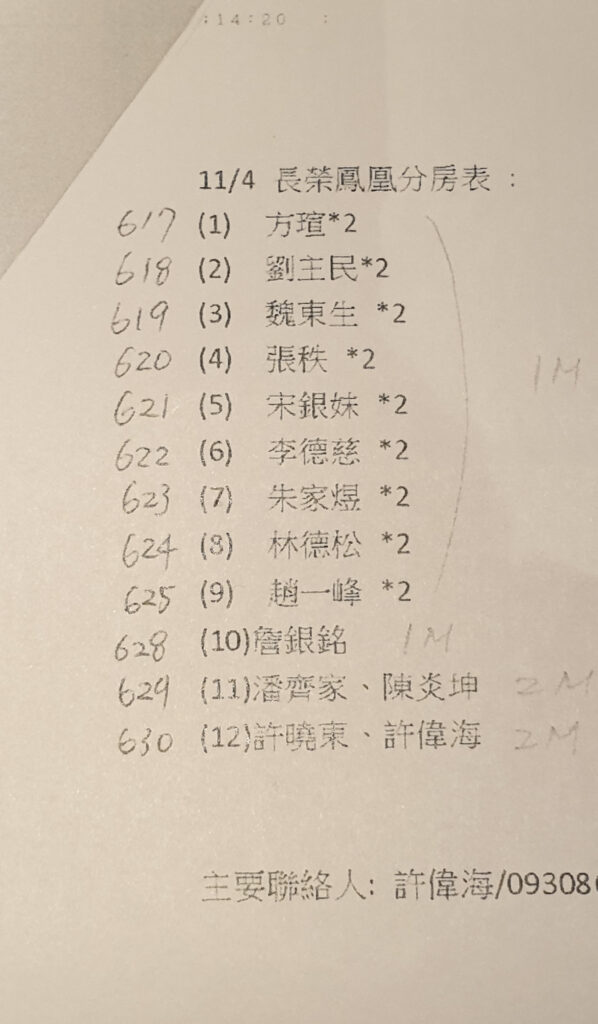 :14:20 :
11/4 長榮鳳凰分房表:
617 (1) 方瑄*2
618 (2) 劉主民*2
619 (3) 魏東生 *2
620 (4) 張秩 *2
1M
621 (5) 宋銀妹 *2
622 (6) 李德慈 *2
623 (7) 朱家煜 *2
624 (8) 林德松 *2
625 (9) 趙一峰 *2
628 (10)詹銀銘 1M
629 (11)潘齊家、陳炎坤 2M
630 (12)許曉東、許偉海 2M
主要聯絡人: 許偉海/09308